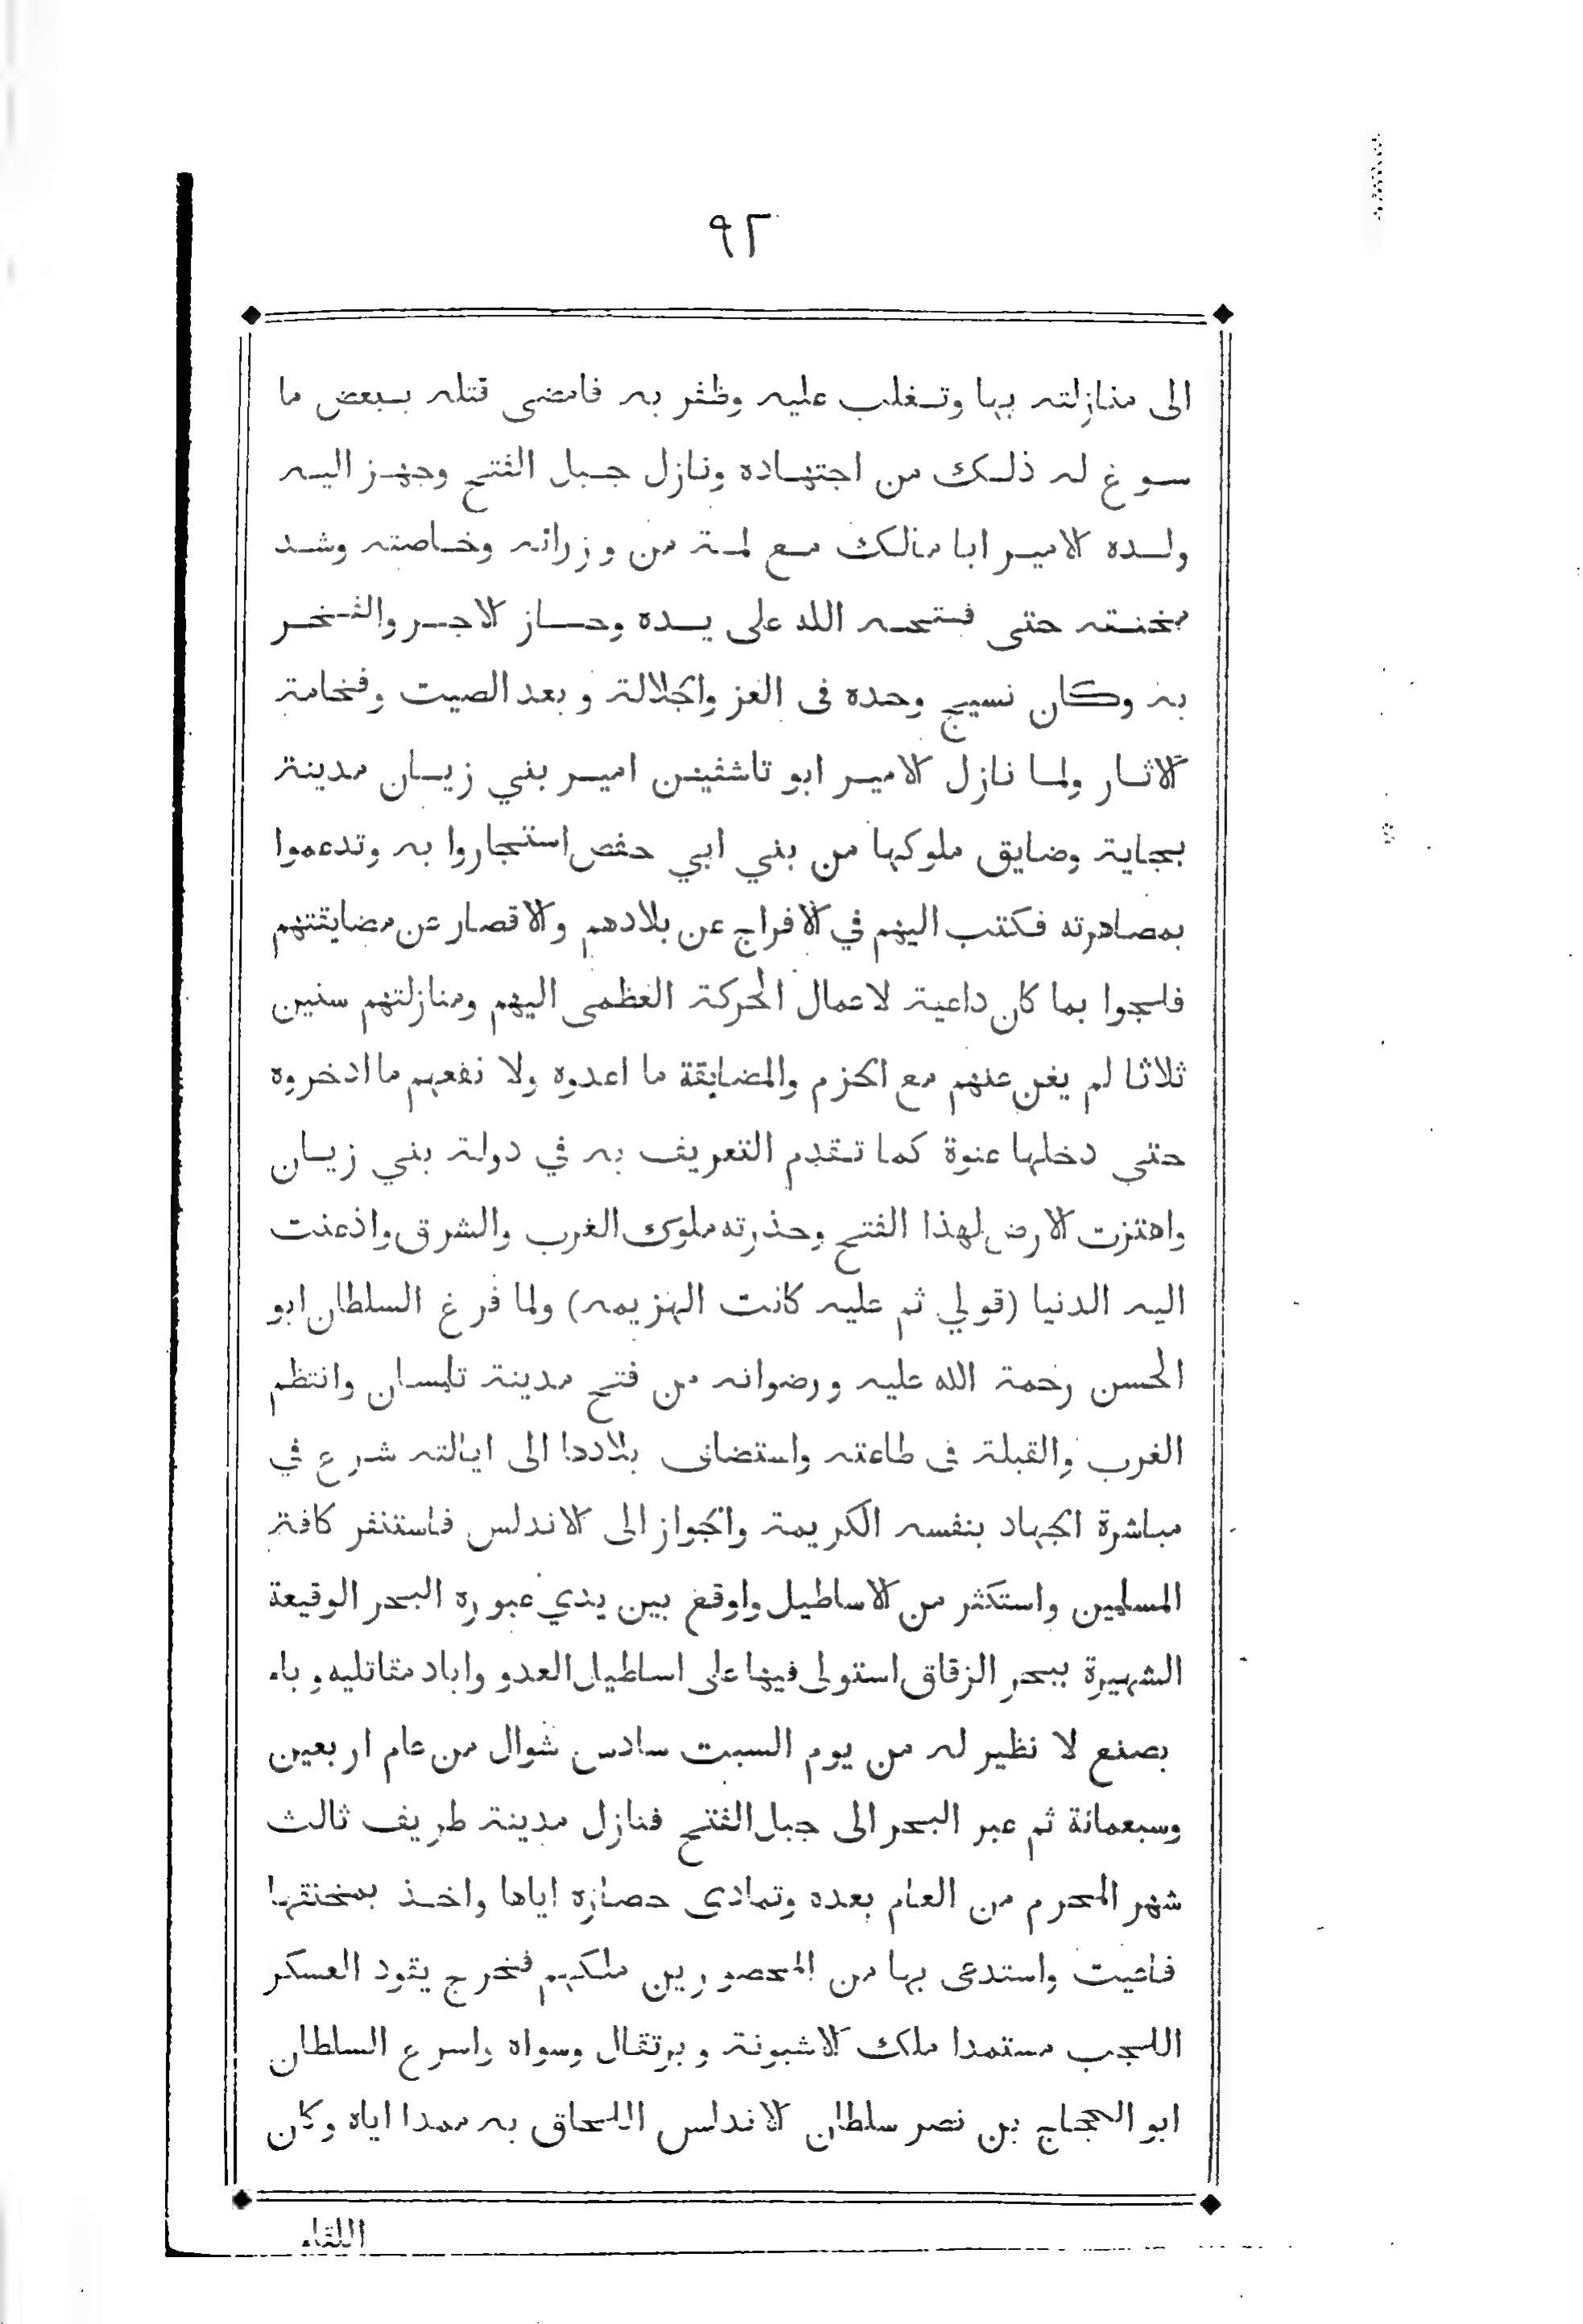 ٩٢
الى منازلته بها وتغلب عليه وظفر به فامضى قتله ببعض ما
سوغ له ذلك من اجتهاده ونازل جبل الفتح وجهز اليه
ولده الامير ابا مالك مع لمة من وزرائه وخاصته وشد
مخنقه حتى فتحه الله على يده وحاز الاجر والفخر
به وكان نسيج وحده فى العز والجلالة وبعد الصيت وفخامة
الاثار ولما نازل الامير ابو تاشفين امير بني زيان مدينة
بجاية وضايق ملوكها من بني ابي حفص استجاروا به وتدعموا
بمصاهرته فكتب اليهم في الافراج عن بلادهم والاقصار عن مضايقتهم
فلجوا بما كان داعية لاعمال الحركة العظمى اليهم ومنازلتهم سنين
ثلاثا لم يغن عنهم مع الحزم والمضايقة ما اعدوه ولا نفعهم ما ادخروه
حتى دخلها عنوة كما تقدم التعريف به في دولة بني زيان
واهتزت الارض لهذا الفتح وحذرته ملوك الغرب والشرق واذعنت
اليه الدنيا (قولي ثم عليه كانت الهزيمه) ولما فرغ السلطان ابو
الحسن رحمة الله عليه ورضوانه من فتح مدينة تلمسان وانتظم
الغرب والقبلة فى طاعته واستضاف بلادها الى ايالته شرع في
مباشرة الجهاد بنفسه الكريمة والجواز الى الاندلس فاستنفر كافة
المسلمين واستكثر من الاساطيل واوقع بين يدي عبوره البحر الوقيعة
الشهيرة ببحر الزقاق استولى فيها على اساطيل العدو واباد مقاتليه وباء
بصنع لا نظير له من يوم السبت سادس شوال من عام اربعين
وسبعمائة ثم عبر البحر الى جبل الفتح فنازل مدينة طريف ثالث
شهر المحرم من العام بعده وتمادى حصاره اياها واخذ بمخنقها
فاعيت واستدعى بها من المحصورين ملكهم فخرج يقود العسكر
اللجب مستمدا ملك الاشبونة وبرتقال وسواه واسرع السلطان
ابو الحجاج بن نصر سلطان الاندلس اللحاق به ممدا اياه وكان
اللقاء